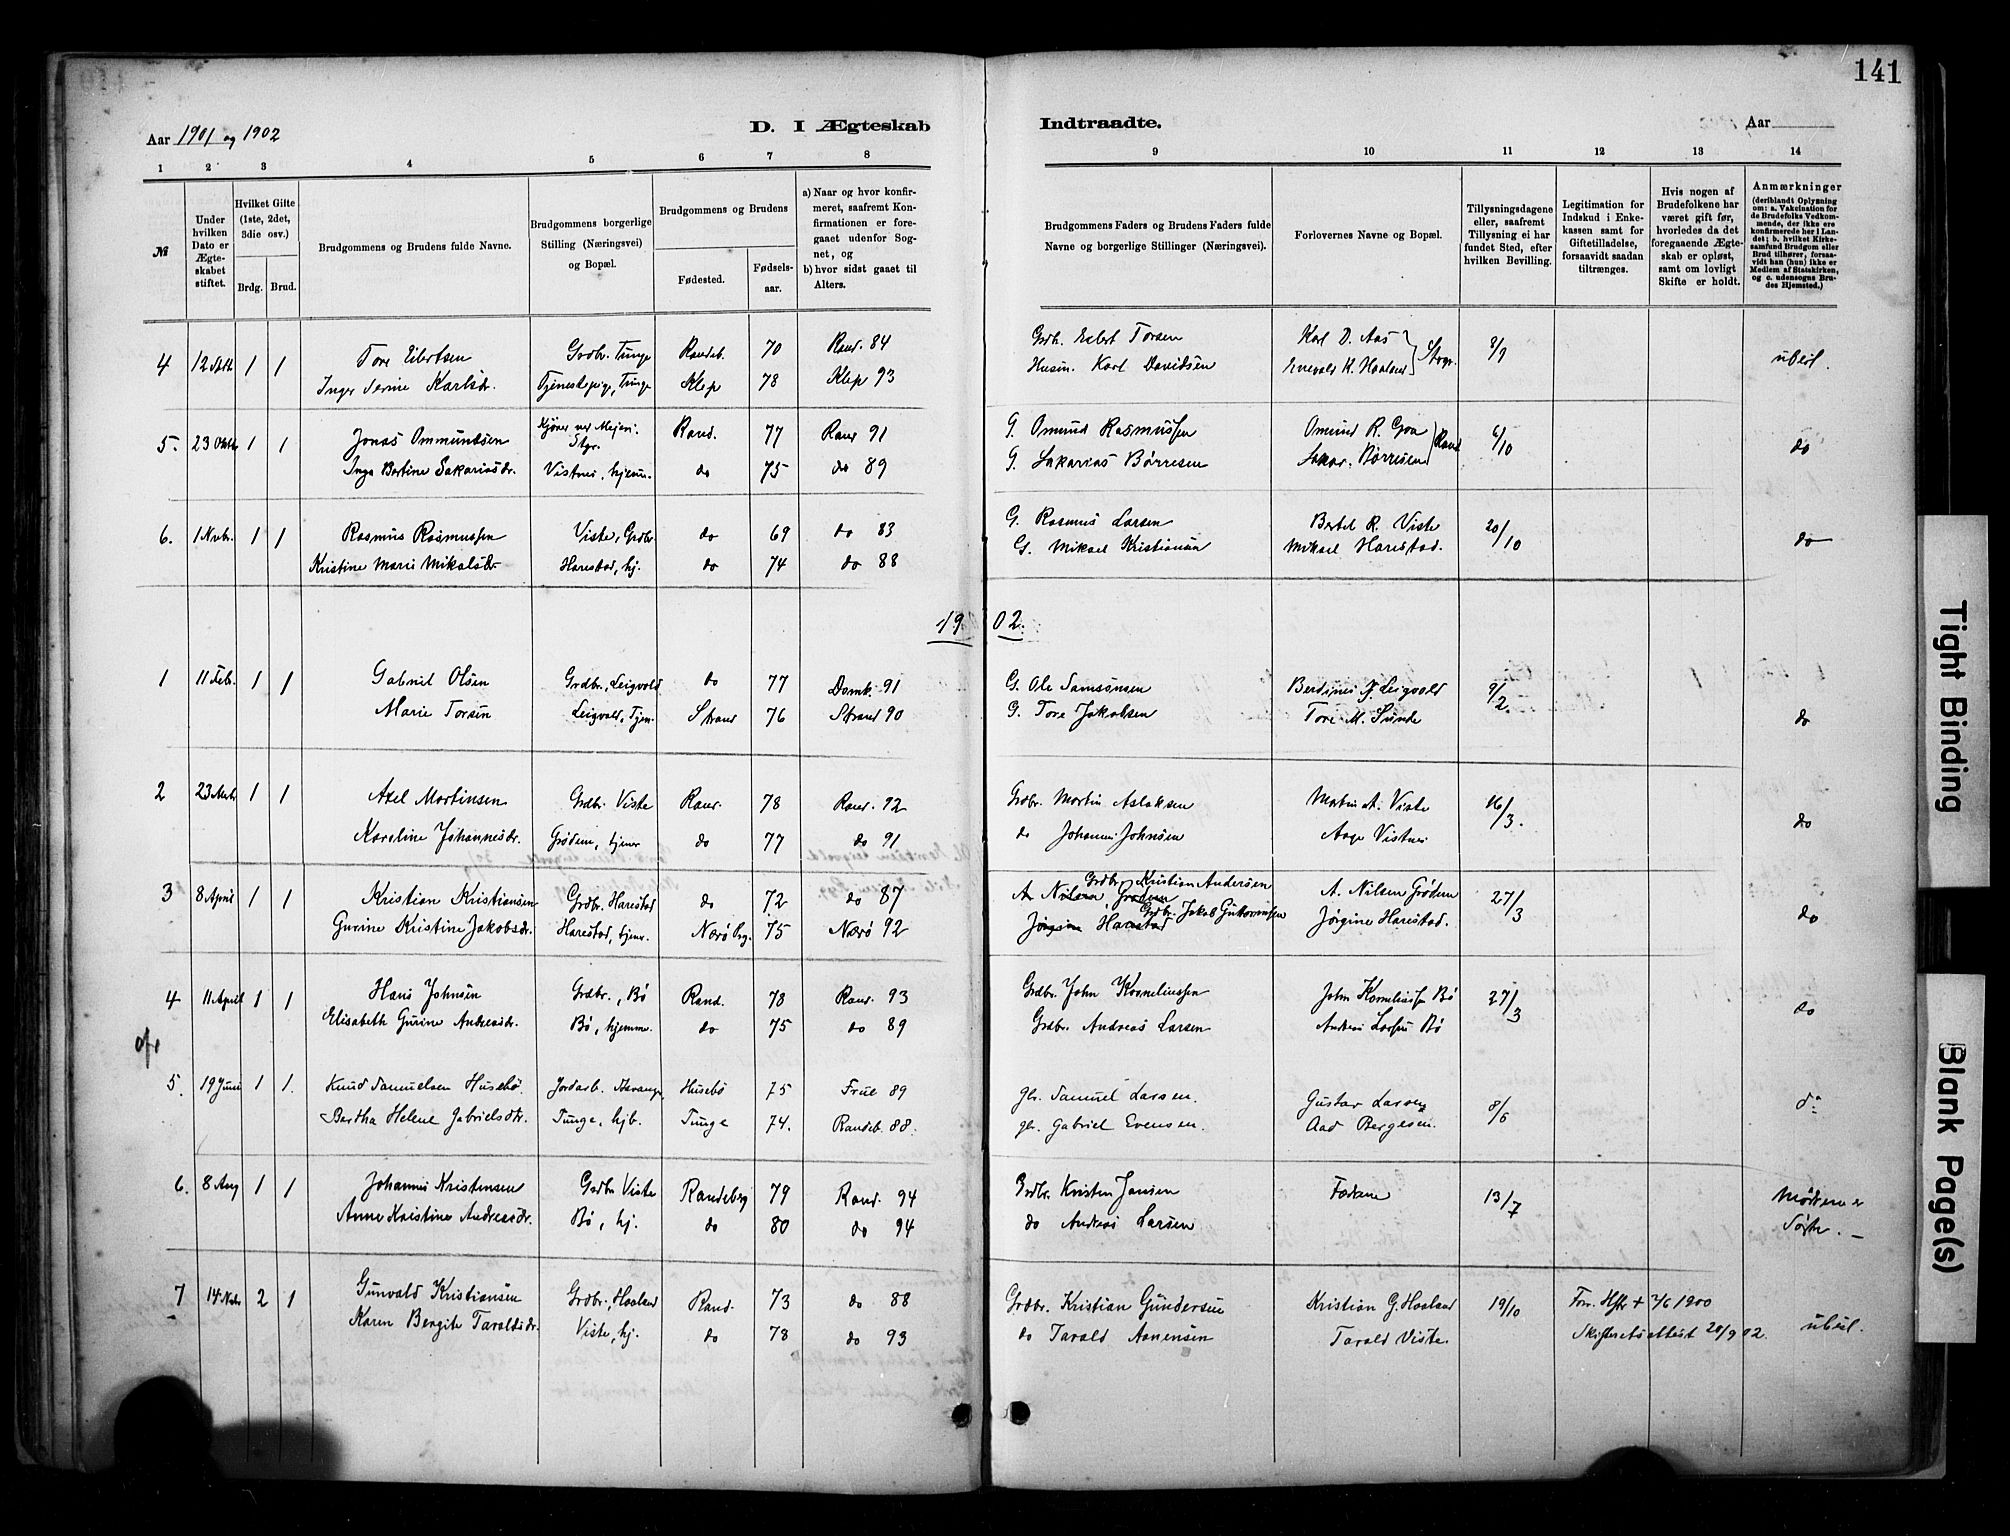 141
Aar 1901 og 1902
D. I Ægteskab Indtraadte.
Aar
1 2 3 4 5 6 7 8 9 10 11 12 13 14
№
Under hvilken Dato er Ægteskabet stiftet.
Hvilket Gifte (1ste, 2det, 3die osv.)
Brdg. Brud.
Brudgommens og Brudens fulde Navne.
Brudgommens borgerlige Stilling (Næringsvei) og Bopæl.
Brudgommens og Brudens
Fødested.
Fødselsaar.
a) Naar og hvor konfirmeret, saafremt Konfirmationen er foregaaet udenfor Sognet, og
b) hvor sidst gaaet til Alters.
Brudgommens Faders og Brudens Faders fulde Navne og borgerlige Stillinger (Næringsvei).
Forlovernes Navne og Bopæl.
Tillysningsdagene eller, saafremt Tillysning ei har fundet Sted, efter hvilken Bevilling.
Legitimation for Indskud i Enkekassen samt for Giftetilladelse, forsaavidt saadan tiltrænges.
Hvis nogen af Brudefolkene har været gift før, hvorledes da det foregaaende Ægteskab er opløst, samt om lovligt Skifte er holdt.
Anmærkninger (deriblandt Oplysning om: a. Vakcination for de Brudefolks Vedkommende, der ikke ere konfirmerede her i Landet; b. hvilket Kirkesamfund Brudgom eller Brud tilhører, forsaavidt han (hun) ikke er Medlem af Statskirken, og c. udensogns Brudes Hjemsted.)
4 12 1 1 Tore Eilertsen Grdbr. Tunge Randeb. 70 Rand. 84 Grdb. Eilert Torsen Karl D. Aas 8/9
Inger Serine Karlsdr. Tjenestepige, Tunge Klep 78 Klep 93 Husm. Karl Davidsen K. Haaland ubesl.
5. 23 Oktbr 1 1 Jonas Ommundsen Kjører ved Mejeri Rand. 77 Rand 91 G. Omund Rasmussen Omund R. Goa Rand 6/10
Inga Bertine Sakariasdr. Vistnes, hjem. do 75 do 89 G. Sakarias Børresen Sakar. Børresen do
6. 1 Nvbr. 1 1 Rasmus Rasmussen Viste, Grdbr. do 69 do 83 G. Rasmus Larsen Bertel R. Viste 20/10
Kristine Marie Mikalsdr Harestad, hj. do 74 do 88 G. Mikael Kristiansen Mikael Harestad. do
1902.
1 11 Feb. 1 1 Gabriel Olsen Grdbr., Leigvold do 77 Domk. 91 G. Ole Samsonsen Berdines J. Leigvold 9/2.
Marie Torsen Leigvold, Tjen. Strand 76 Strand 90 G. Tore Jakobsen Tore M. Sunde do
2 23 1 1 Axel Martinsen Grdbr. Viste Rand. 78 Rand. 92 Grdbr. Martin Aslaksen Martin A. Viste 16/3.
Karoline Johannesdr. Grødem, hjem 77 do do 91 do Johannes Johnsen Aage Vistnes do
3 8 April 1 1 Kristian Kristiansen Grdbr. Harestad do 72 do 87 A. Nilsen, Grødem Grdbr. Kristian Andersen A. Nilsen Grødem 27/3
Gurine Kristine Jakobsdr. Harestad, tjen. Nærø 75 Nærø 92 Jørgine Harestad Grdbr. Jakob Guttormsen Jørgine Harestad. do
4 11 April 1 1 Hans Johnsen Grdbr., Bø Rand. 78 Rand. 93 Grdbr. John Korneliussen John Korneliussen Bø 27/3
Elisabeth Gurine Andreasdr. Bø, hjemme. do 75 do 89 Grdbr. Andreas Larsen Andreas Larsen Bø do
5. 19 Juni 1 1. Knud Samuelsen Husebø. Jordarb. Husebø 75 Frue 89 gbr. Samuel Larsen. Gustav Larsen 8/6
Bertha Helene Gabrielsdtr. Tunge, hjb. Tunge 74. Randeb. 88. gbr. Gabriel Evensen. Aad Bergesen. do
6. 8 Aug 1 1 Johannes Kristensen Grdbr Viste Randeberg 79 Rand. 94 Grdbr. Kristen Jansen Fædrene 13/7 Mødrene er
Anne Kristine Andreasdr. Bø, hj. do 80 do 94 do Andreas Larsen Søstre. –
7 14 Nvbr 2 1 Gunvald Kristiansen Grdbr., Haaland Rand. 73 do 88 Grdbr. Kristian Gundersen Kristian G. Haaland 19/10 Forr. Hstr + 2/6 1900
Karen Bergite Taraldsdr. Viste, hj. do 78 do 93 do Tarald Aanensen Tarald Viste. Skifteretsattest 20/9 02. ubesl.
Tight Binding
Blank Page(s)